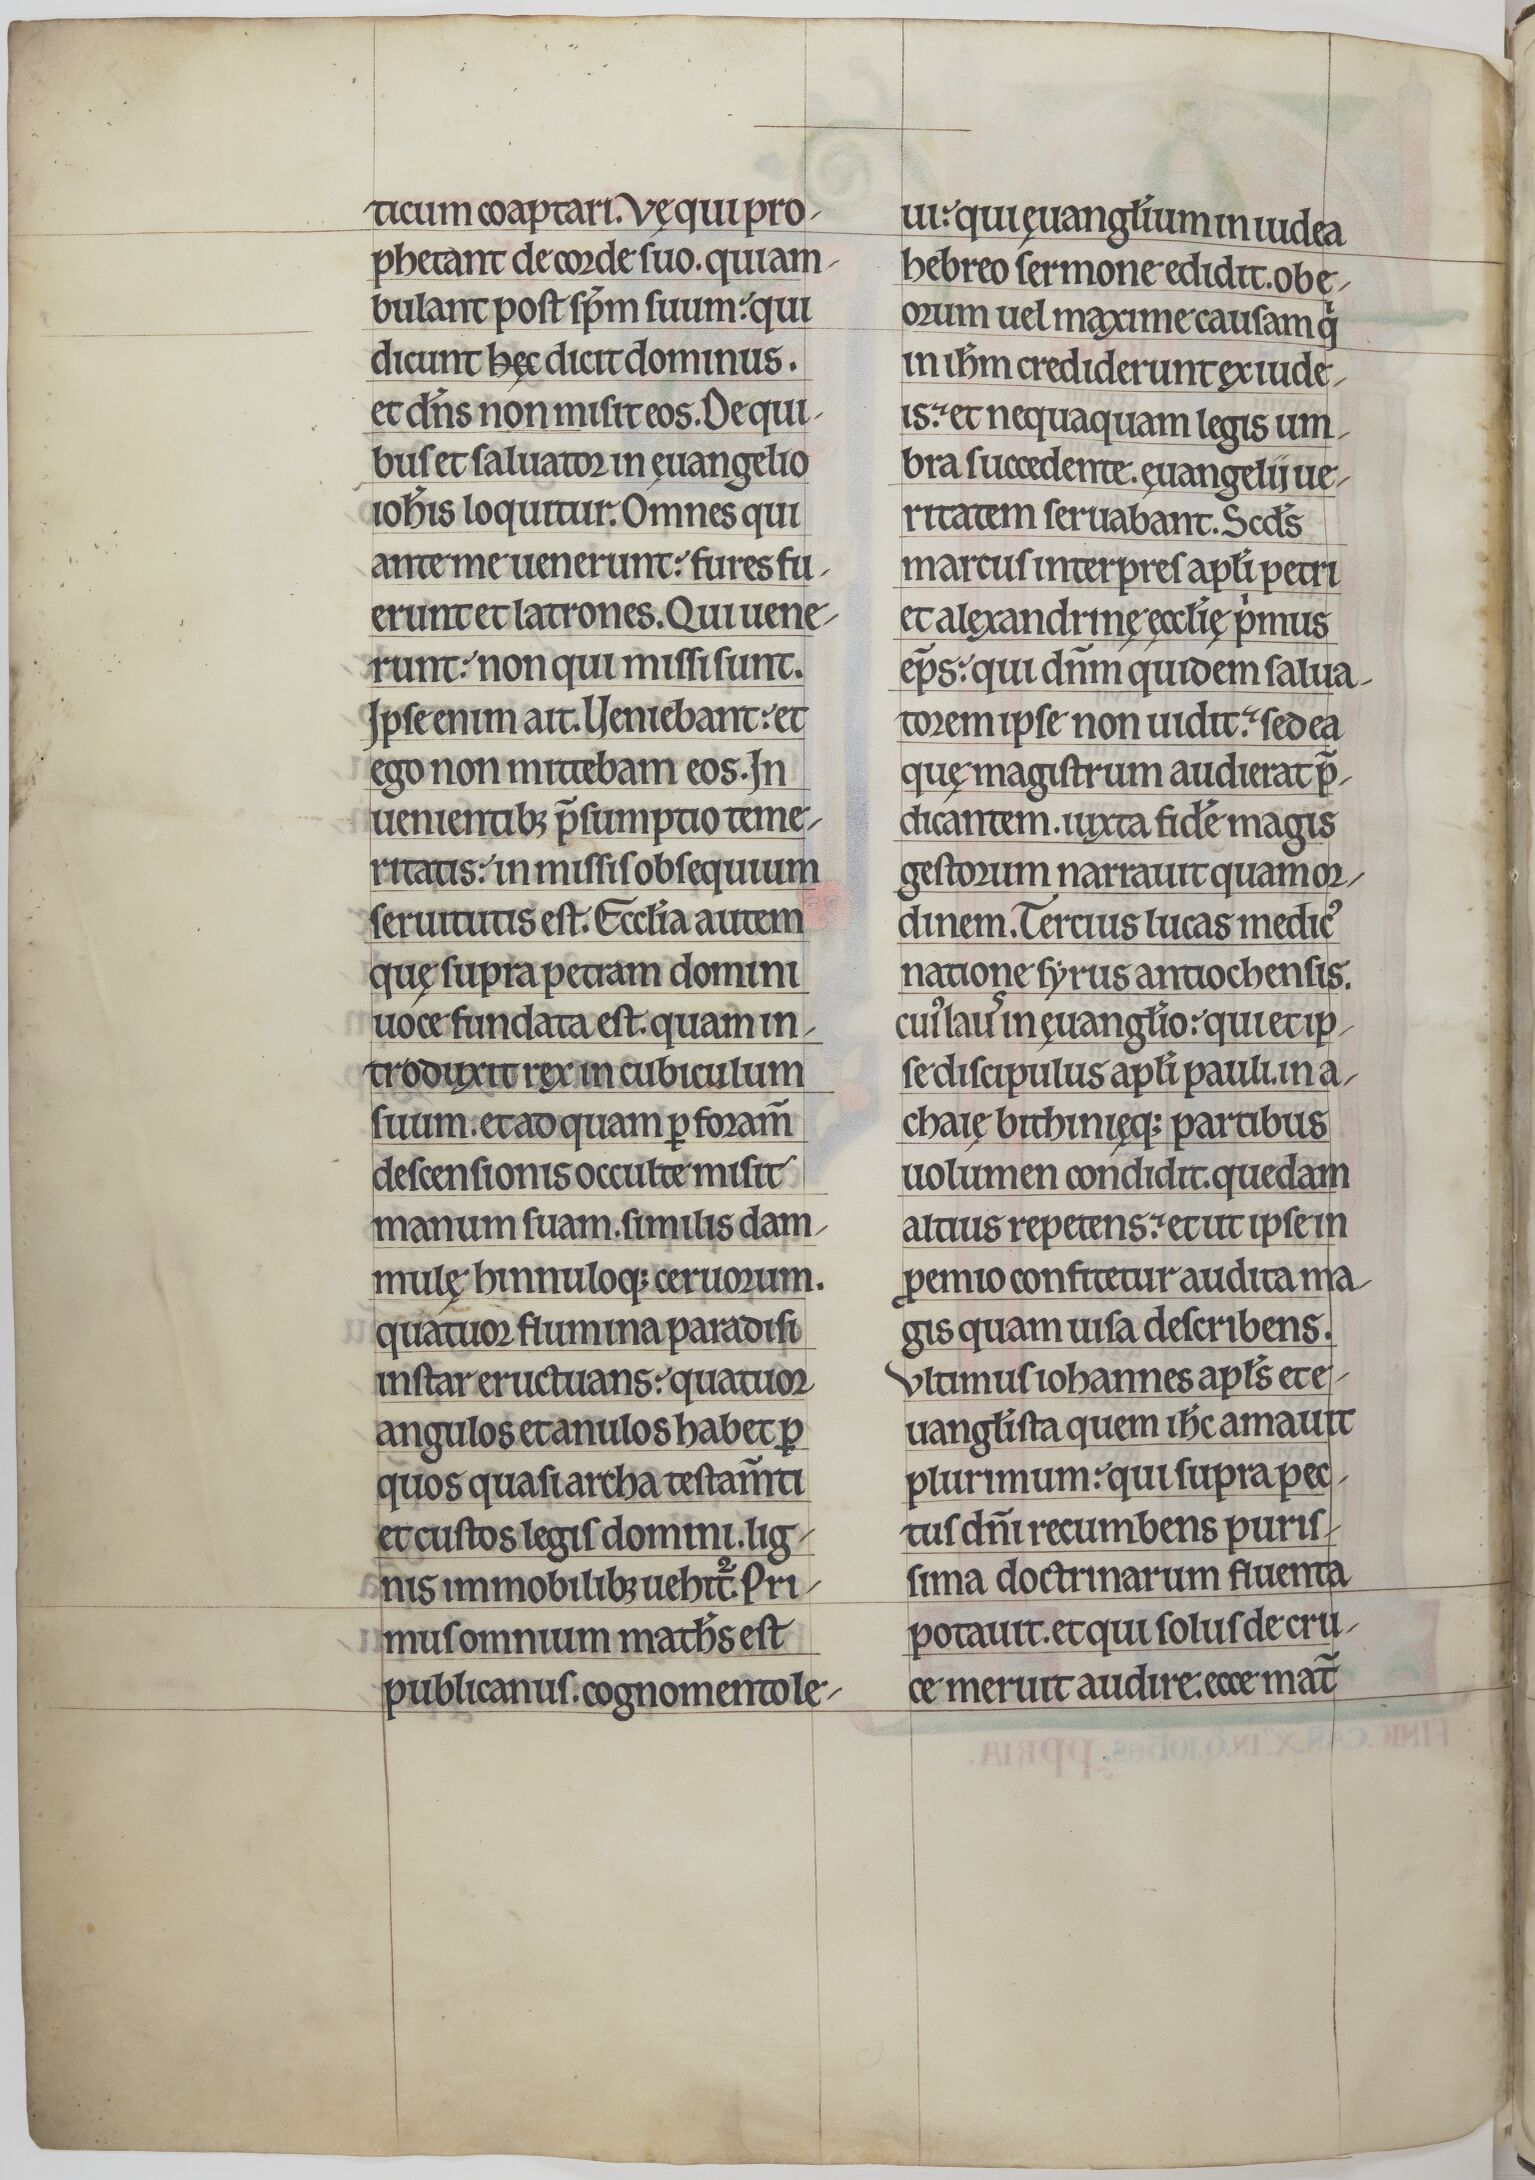 ticum coaptari. Vę qui pro-
phetant de corde suo. qui am-
bulant post sp̄m suum: qui
dicunt hęc dicit dominus.
et dn̄s non misit eos. De qui-
bus et saluator in ęuangelio
ioh̄is loquitur. Omnes qui
ante me uenerunt: fures fu-
erunt et latrones. Qui uene-
runt: non qui missi sunt.
Ipse enim ait. Veniebant: et
ego non mittebam eos. In
uenientib; p̄sumptio teme-
ritatis: in missis obsequium
seruitutis est. Eccl̄ia autem
quę supra petram domini
uoce fundata est. quam in-
troduxit rex in cubiculum
suum. et ad quam ꝑ foram̄
descensionis occulte misit
manum suam. similis dam-
mulę hinnuloq; ceruorum.
quatuor flumina paradisi
instar eructuans: quatuor
angulos et anulos habet ꝑ
quos quasi archa testam̄ti
et custos legis domini. lig-
nis immobilib; uehit᷑. Pri-
mus omnium math̄s est
publicanus. cognomento le-
ui: qui ęuangl̄ium in iudea
hebreo sermone edidit. ob e-
orum uel maxime causam qͥ
in ih̄m crediderunt ex iude-
is: et nequaquam legis um-
bra succedente. ęuangelii ue-
ritatem seruabant. Scd̄s
marcus interpres apl̄i petri
et alexandrinę ęccl̄ię pͥmus
ep̄s: qui dn̄m quidem salua-
torem ipse non uidit: sed ea
quę magistrum audierat p̄-
dicantem. iuxta fidē magis
gestorum narrauit quam or-
dinem. Tercius lucas medicꝰ
natione syrus antiochensis.
cuiꝰ laus in ęuangl̄io: qui et ip-
se discipulus apl̄i pauli. in a-
chaię bithinięq; partibus
uolumen condidit. quedam
altius repetens: et ut ipse in
ꝓemio confitetur audita ma-
gis quam uisa describens.
Vltimus iohannes apl̄s et e-
uangl̄ista quem ih̄c amauit
plurimum: qui supra pec-
tus dn̄i recumbens puris-
sima doctrinarum fluenta
potauit. et qui solus de cru-
ce meruit audire. ecce mat̄